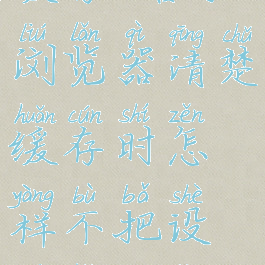 liú lǎn qì qīng chǔ
浏览器清楚
huǎn cún shí zěn
缓存时怎
yàng bù bǎ shè
样不把设